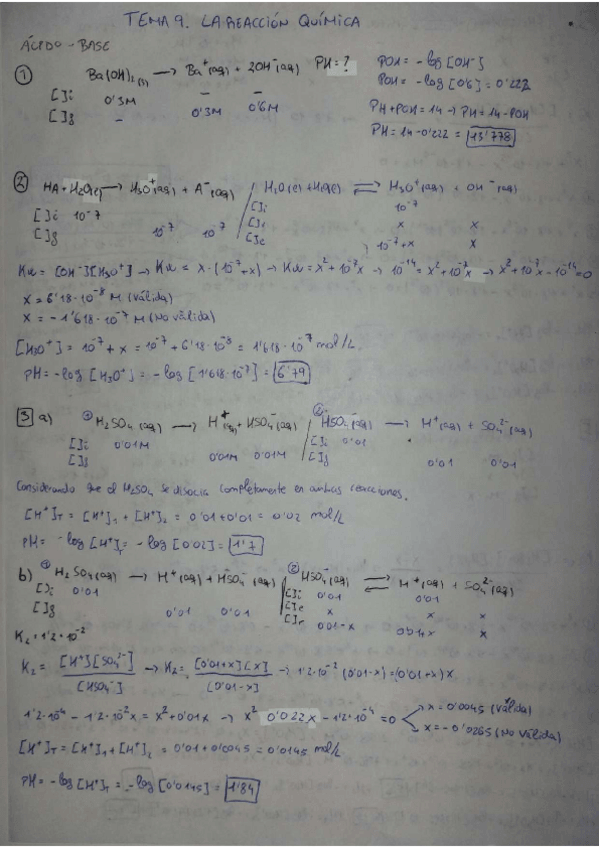 TEMA 9. LA REACCIÓN QUÍMICA
ÁCIDO-BASE
① Ba(OH)₂(s) → Ba⁺(aq) + 2OH⁻(aq) PH = ?
[ ]i 0'3M - -
[ ]f - 0'3M 0'6M
POH = -log[OH⁻]
POH = -log[0'6] = 0'222
PH + POH = 14 → PH = 14 - POH
PH = 14 - 0'222 = 13'778
② HA + H₂O(l) → H₃O⁺(aq) + A⁻(aq)
[ ]i 10⁻⁷
[ ]f 10⁻⁷ 10⁻⁷
H₂O(l) + H₂O(l) ⇌ H₃O⁺(aq) + OH⁻(aq)
[ ]i 10⁻⁷
[ ]i x x
[ ]e 10⁻⁷+x x
Kw = [OH⁻][H₃O⁺] → Kw = x·(10⁻⁷+x) → Kw = x² + 10⁻⁷x → 10⁻¹⁴ = x² + 10⁻⁷x → x² + 10⁻⁷x - 10⁻¹⁴ = 0
x = 6'18·10⁻⁸ M (Válida)
x = -1'618·10⁻⁷ M (No válida)
[H₃O⁺] = 10⁻⁷ + x = 10⁻⁷ + 6'18·10⁻⁸ = 1'618·10⁻⁷ mol/L
pH = -log[H₃O⁺] = -log[1'618·10⁻⁷] = 6'79
3 a) ① H₂SO₄(aq) → H⁺(aq) + HSO₄⁻(aq)
[ ]i 0'01M
[ ]f 0'01M 0'01M
② HSO₄⁻(aq) → H⁺(aq) + SO₄²⁻(aq)
[ ]i 0'01
[ ]f 0'01 0'01
Considerando que el H₂SO₄ se disocia completamente en ambas reacciones.
[H⁺]T = [H⁺]₁ + [H⁺]₂ = 0'01 + 0'01 = 0'02 mol/L
pH = -log[H⁺]T = -log[0'02] = 1'7
b) ① H₂SO₄(aq) → H⁺(aq) + HSO₄⁻(aq)
[ ]i 0'01
[ ]f 0'01 0'01
② HSO₄⁻(aq) ⇌ H⁺(aq) + SO₄²⁻(aq)
[ ]i 0'01 0'01
[ ]c x x x
[ ]e 0'01-x 0'01+x x
K₂ = 1'2·10⁻²
K₂ = [H⁺][SO₄²⁻]/[HSO₄⁻] → K₂ = [0'01+x][x]/[0'01-x] → 1'2·10⁻²(0'01-x) = (0'01+x)x
1'2·10⁻⁴ - 1'2·10⁻²x = x² + 0'01x → x² 0'022x - 1'2·10⁻⁴ = 0
x = 0'0045 (Válida)
x = -0'0265 (No Válida)
[H⁺]T = [H⁺]₁ + [H⁺]₂ = 0'01 + 0'0045 = 0'0145 mol/L
pH = -log[H⁺]T = -log[0'0145] = 1'84